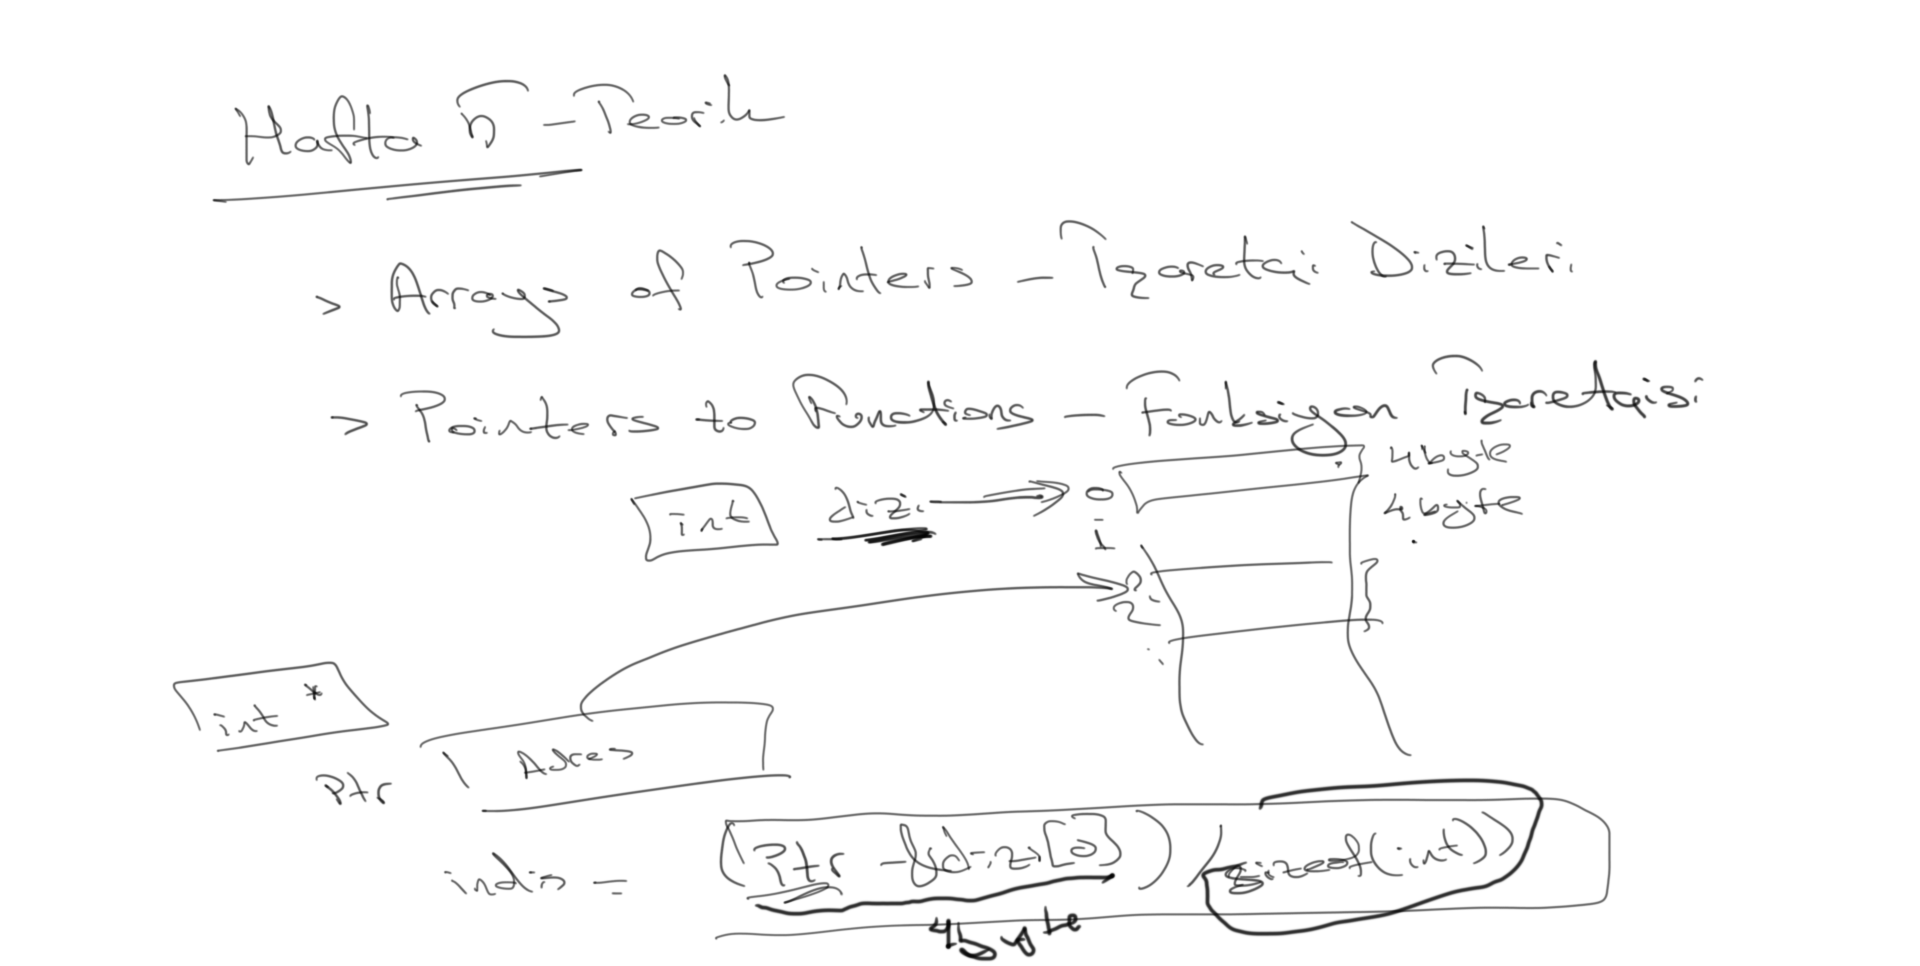 Hafta 5 - Teorik
> Arrays of Pointers - İşaretçi Dizileri
> Pointers to Functions - Fonksiyon İşaretçisi
4 byte
int dizi 0
4 byte
1
2
int *
Adres
Ptr
indis = (Ptr - &dizi[0]) / sizeof(int))
4 byte